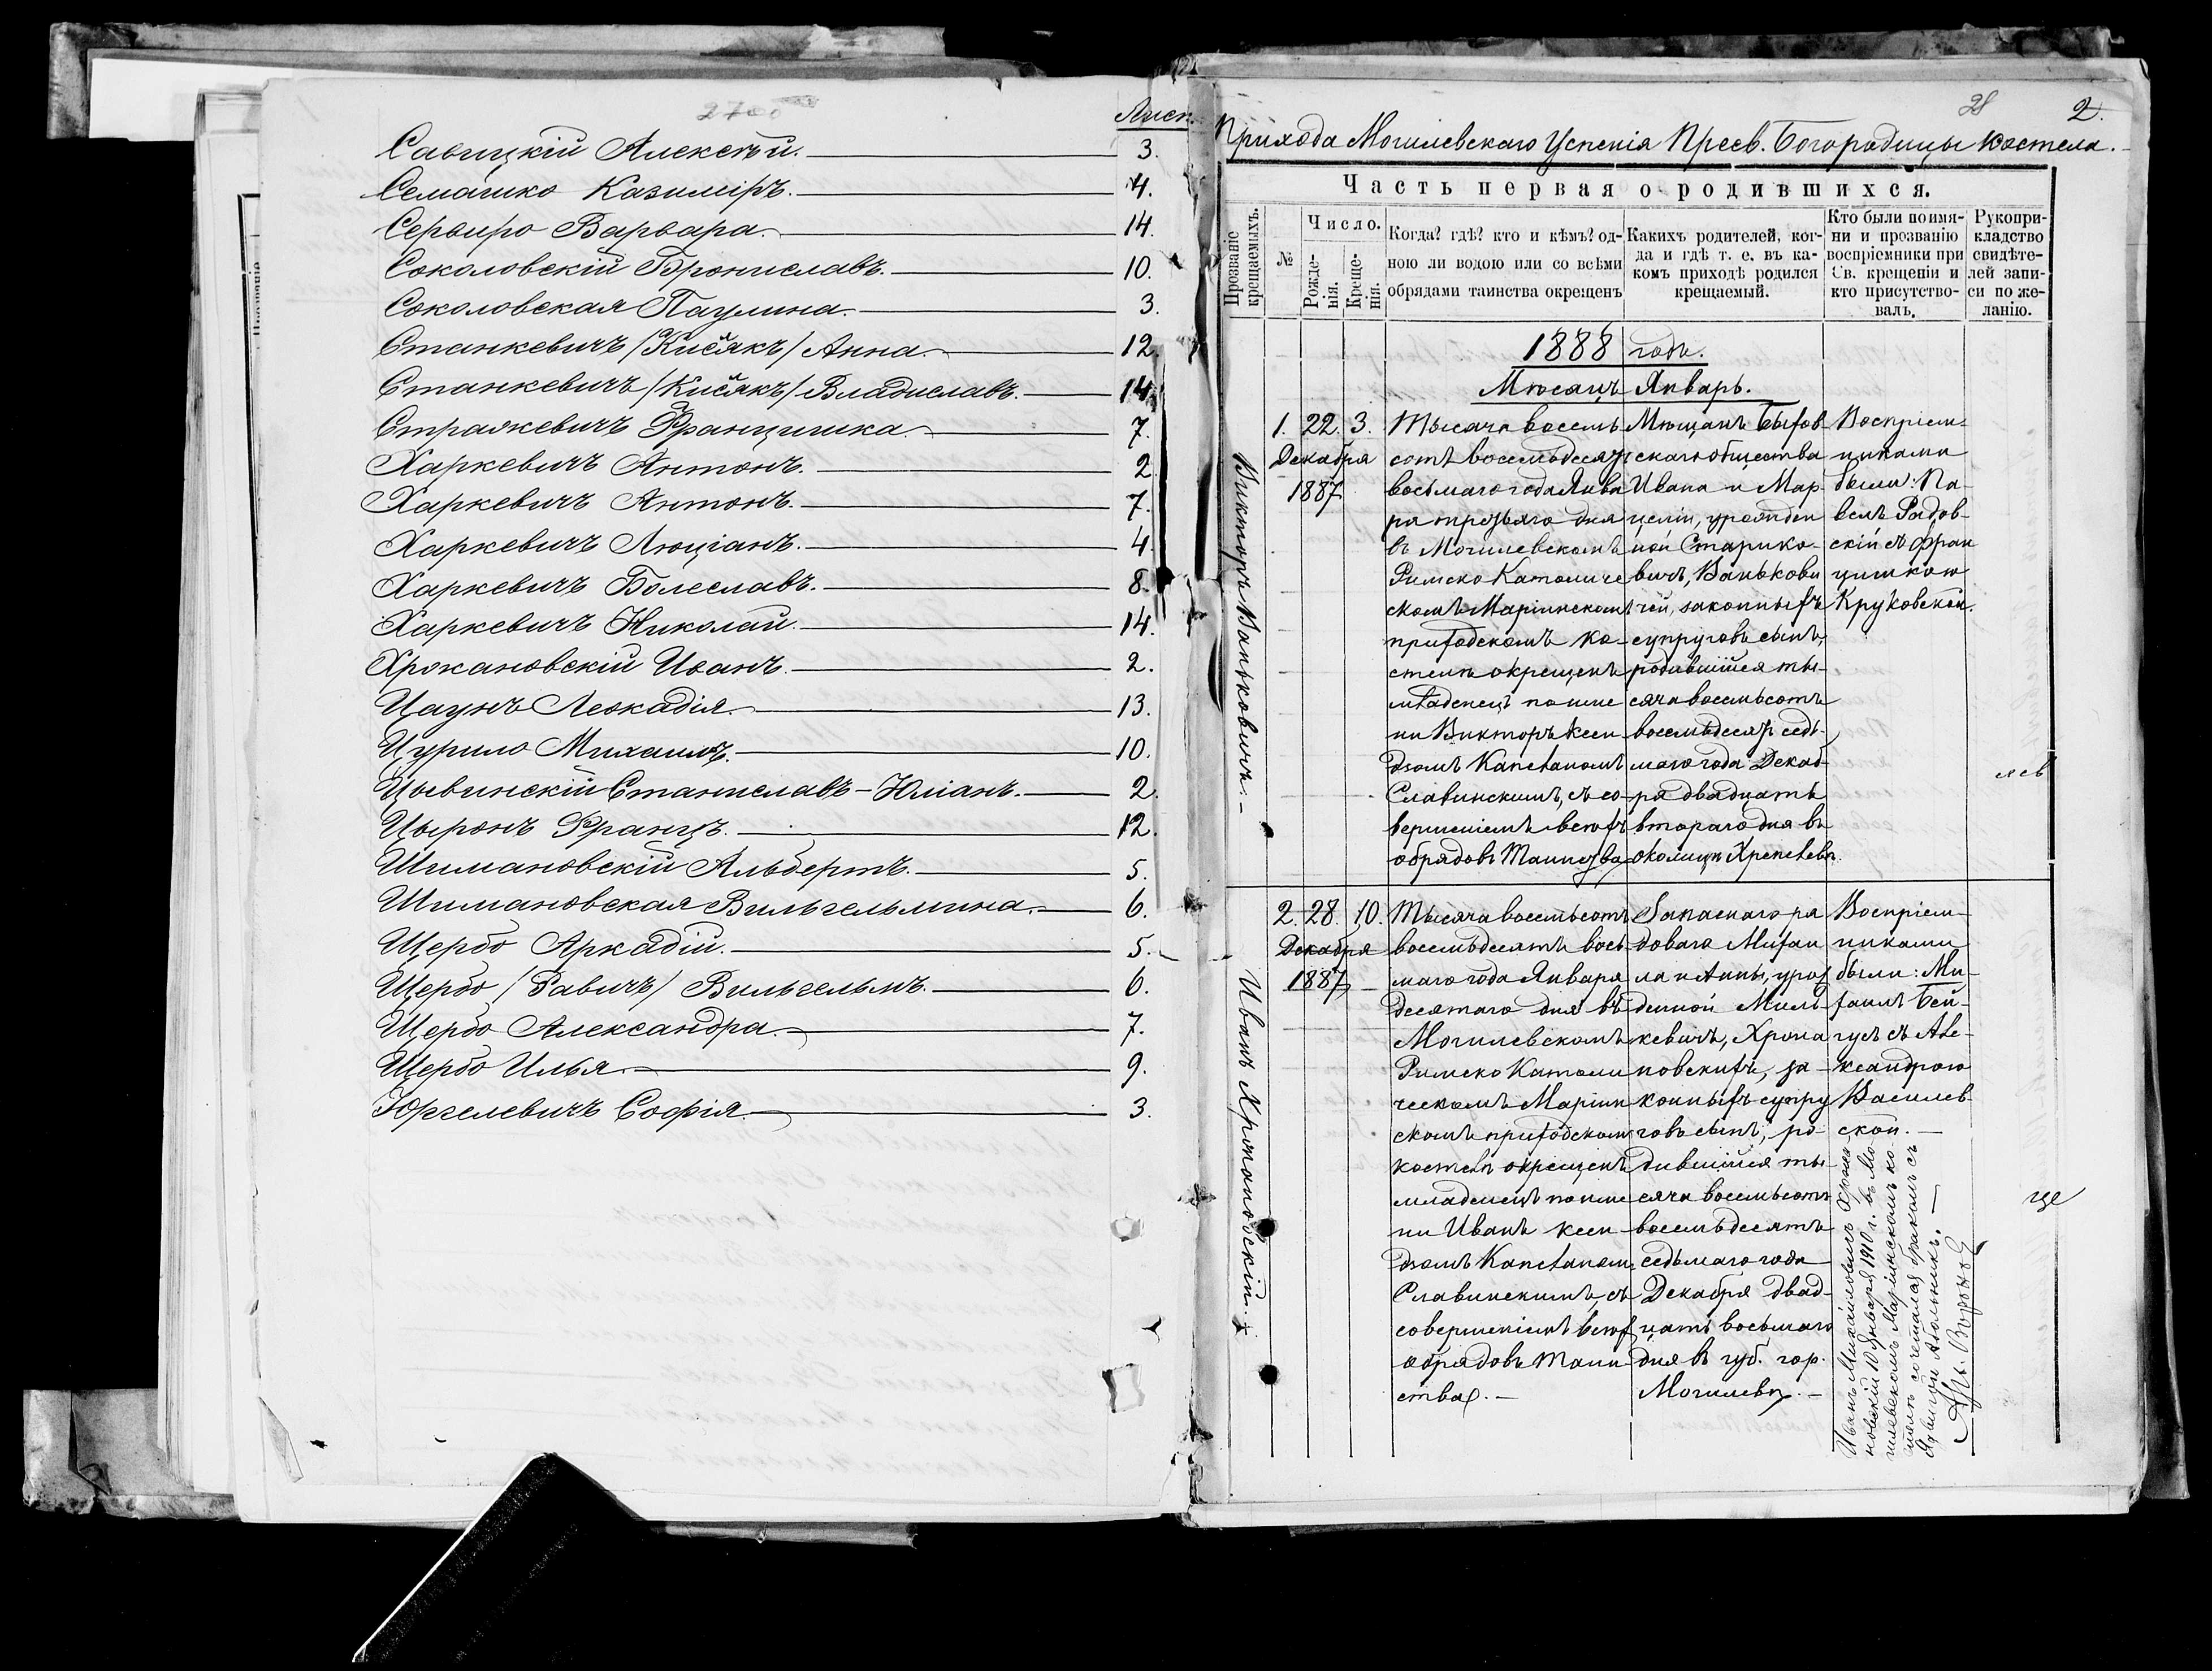 Лист.
Савицкій Алексѣй. 3.
Семашко Казиміръ. 4.
Сервиро Варвара. 14.
Соколовскій Брониславъ. 10.
Соколовская Паулина. 3.
Станкевичъ /Кисѣякъ/ Анна. 12.
Станкевичъ /Кисѣякъ/ Владиславъ. 14.
Францишка. 7.
Харкевичъ Антонъ. 2
Харкевичъ Антонъ. 7.
Харкевичъ Люціанъ. 4.
Харкевичъ Болеславъ. 8.
Харкевичъ Николай. 14.
Хромановскій Иванъ. 2.
Цаунъ Леокадія. 13.
Цурило Михаилъ. 10.
Цывинскій Станиславъ-Юліанъ. 2.
Цыронъ Францъ. 12.
Шимановскій Альбертъ. 5.
Шимановская Вильгельмина. 6.
Щербо Аркадій. 5.
Щербо /Равичъ/ Вильгельмъ. 6.
Щербо Александра. 7.
Щербо Илья. 9.
Юргелевичъ Софія. 3.
28 2.
Прихода Могилевскаго Успенія Пресв. Богородицы костела.
Часть первая о родившихся.
Прозваніе крещаемыхъ.
№
Число.
Рожде-
нія.
Креще-
нія.
Когда? гдѣ? кто и кѣмъ? од-
ною ли водою или со всѣми
обрядами таинства окрещенъ
Какихъ родителей, ког-
да и гдѣ т. е. въ ка-
комъ приходѣ родился
крещаемый.
Кто были по имя-
ни и прозванію
воспріемники при
Св. крещеніи и
кто присутство-
валъ.
Рукопри-
кладство
свидѣте-
лей запи-
си по же-
ланію.
1888 годъ.
Мѣсяцъ Январь.
Викторъ Ваньковичъ.-
1. 22. 3.
Декабря
1887
Тысяча восемь
сотъ восемьдесятъ
восьмаго года Янва
ря третьяго дня
въ Могилевскомъ
Римско Католиче
скомъ Маріинскомъ
приходскомъ ко-
стелѣ окрещенъ
младенецъ по име
ни Викторъ ксен
дзомъ Капеланомъ
Славинскимъ, съ со-
вершеніемъ всѣхъ
обрядовъ Таинства
Мѣщанъ Быхов-
скаго общества
Ивана и Мар-
целіи, урожден
ной Старико-
вичъ, Ваньковы
чей, законныхъ
супруговъ сынъ,
родившійся ты-
сяча восемьсотъ
восемьдесятъ седь-
маго года Декаб-
ря двадцать
втораго дня въ
околицѣ Хрепелевѣ.
Воспріем-
никами
были: Па-
велъ Радов-
скій съ Фран
цишкою
Круковской.
Иванъ Хромановскій.
2. 28. 10.
Декабря
1887
Тысяча восемьсотъ
восемьдесятъ вось-
маго года Января
десятаго дня въ
Могилевскомъ
Римско Католи
ческомъ Маріин
скомъ приходскомъ
костелѣ окрещенъ
младенецъ по име
ни Иванъ ксен
дзомъ Капеланомъ
Славинскимъ, съ
совершеніемъ всѣхъ
обрядовъ Таин-
ства.
Запаснаго ря
доваго Михаи
ла и Анны, урож
денной Миль-
кевичъ, Хрома
новскихъ, за-
конныхъ супру
говъ сынъ, ро-
дившійся ты-
сяча восемьсотъ
восемьдесятъ
седьмаго года
Декабря двад-
цать восьмаго
дня въ губ. гор.
Могилевѣ.
Воспріем-
никами
были: Ми-
хаилъ Бей-
гусъ съ Але-
ксандрою
Василев-
ской.
Иванъ Михайловичъ Хрома-
новскій 10 Января 1910 г. въ Мо-
гилевскомъ Маріинскомъ ко-
стелѣ сочетался бракомъ съ